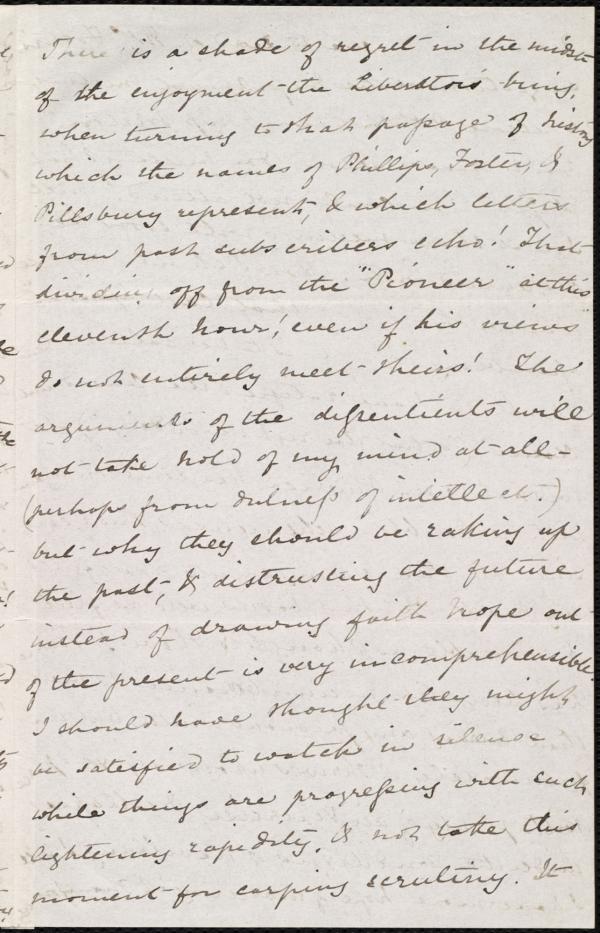 There is a shade of regret in the midst
of the enjoyment the Liberators bring,
when turning to that passage of history
which the names of Phillips, Foster, &
Pillsbury represent, & which letters
from past subscribers echo! That
dividing off from the "Pioneer" at this
eleventh hour! even if his views
do not entirely meet theirs! The
arguments of the dissentients will
not take hold of my mind at all -
(perhaps from dulness of intellect.)
but why they should be raking up
the past, & distrusting the future
instead of drawing faith hope out
of the present is very incomprehensible.
I should have thought they might
be satisfied to watch in silence
while things are progressing with such
lightening rapidity, & not take this
moment for carping scrutiny. It